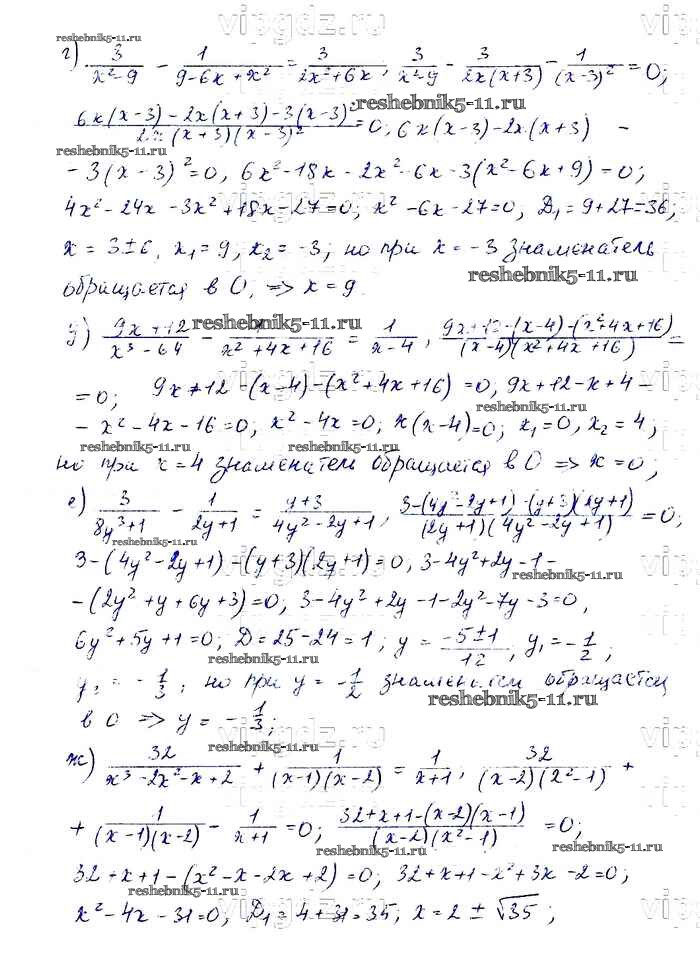 vipgdz.ru
reshebnik5-11.ru
г) 3/(x²-9) - 1/(9-6x+x²) = 3/(2x²+6x), 3/(x²-9) - 3/(2x(x+3)) - 1/(x-3)² = 0;
reshebnik5-11.ru
(6x(x-3)-2x(x+3)-3(x-3)²)/(2x(x+3)(x-3)²) = 0, 6x(x-3)-2x(x+3) -
reshebnik5-11.ru
- 3(x-3)²=0, 6x²-18x-2x²-6x-3(x²-6x+9)=0;
4x²-24x-3x²+18x-27=0; x²-6x-27=0, D₁=9+27=36;
x=3±6, x₁=9, x₂=-3; но при x=-3 знаменатель
reshebnik5-11.ru
обращается в 0, => x=9.
reshebnik5-11.ru
д) (9x+12)/(x³-64) - /(x²+4x+16) = 1/(x-4), (9x+12-(x-4)-(x²+4x+16))/((x-4)(x²+4x+16)) =
reshebnik5-11.ru
= 0; 9x+12-(x-4)-(x²+4x+16)=0, 9x+12-x+4-
reshebnik5-11.ru
- x²-4x-16=0; x²-4x=0; x(x-4)=0; x₁=0, x₂=4;
reshebnik5-11.ru reshebnik5-11.ru
но при x=4 знаменатель обращается в 0 => x=0;
е) 3/(8y³+1) - 1/(2y+1) = (y+3)/(4y²-2y+1), (3-(4y²-2y+1)-(y+3)(2y+1))/((2y+1)(4y²-2y+1)) = 0;
reshebnik5-11.ru
3-(4y²-2y+1)-(y+3)(2y+1)=0, 3-4y²+2y-1-
reshebnik5-11.ru
-(2y²+y+6y+3)=0, 3-4y²+2y-1-2y²-7y-3=0,
6y²+5y+1=0; D=25-24=1; y=(-5±1)/12, y₁=-1/2;
reshebnik5-11.ru
y₂=-1/3; но при y=-1/2 знаменатель обращается
reshebnik5-11.ru
в 0 => y=-1/3;
vipgdz.ru
reshebnik5-11.ru
ж) 32/(x³-2x²-x+2) + 1/((x-1)(x-2)) = 1/(x+1), 32/((x-2)(x²-1)) +
+ 1/((x-1)(x-2)) - 1/(x+1) = 0; (32+x+1-(x-2)(x-1))/((x-2)(x²-1)) = 0;
reshebnik5-11.ru
32+x+1-(x²-x-2x+2)=0; 32+x+1-x²+3x-2=0;
reshebnik5-11.ru
x²-4x-31=0; D₁=4+31=35; x=2±√35;
vipgdz.ru